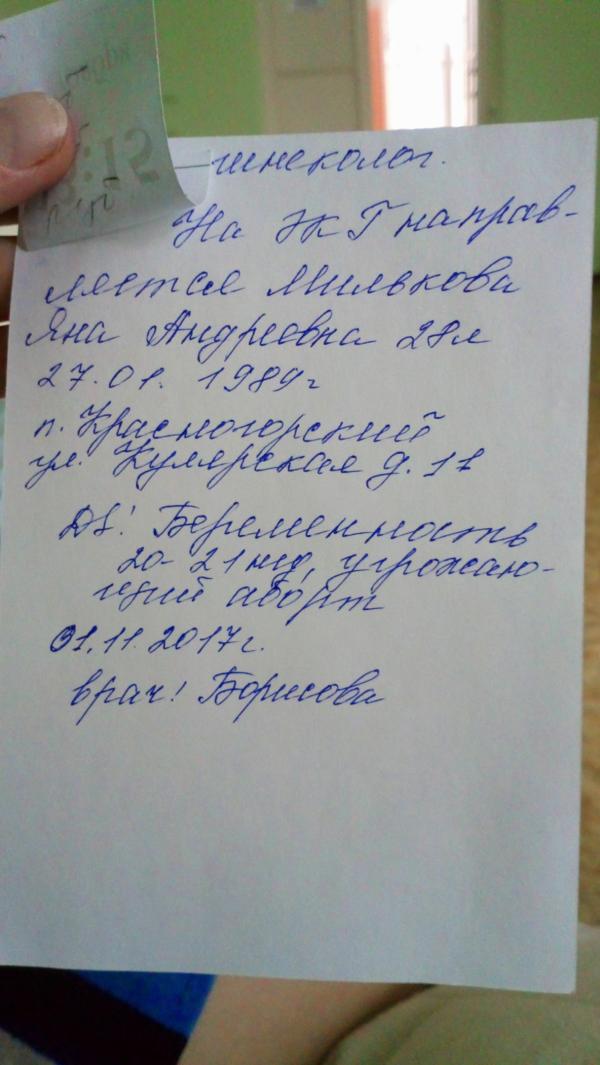 гинеколог.
На ЖКГ направ-
ляется Милькова
Яна Андреевна 28л
27.01. 1989г
п. Красногорский
ул. Кулярская д. 11
DS: Беременность
20-21 нед, угрожаю-
щий аборт
01.11.2017г.
врач: Борисова